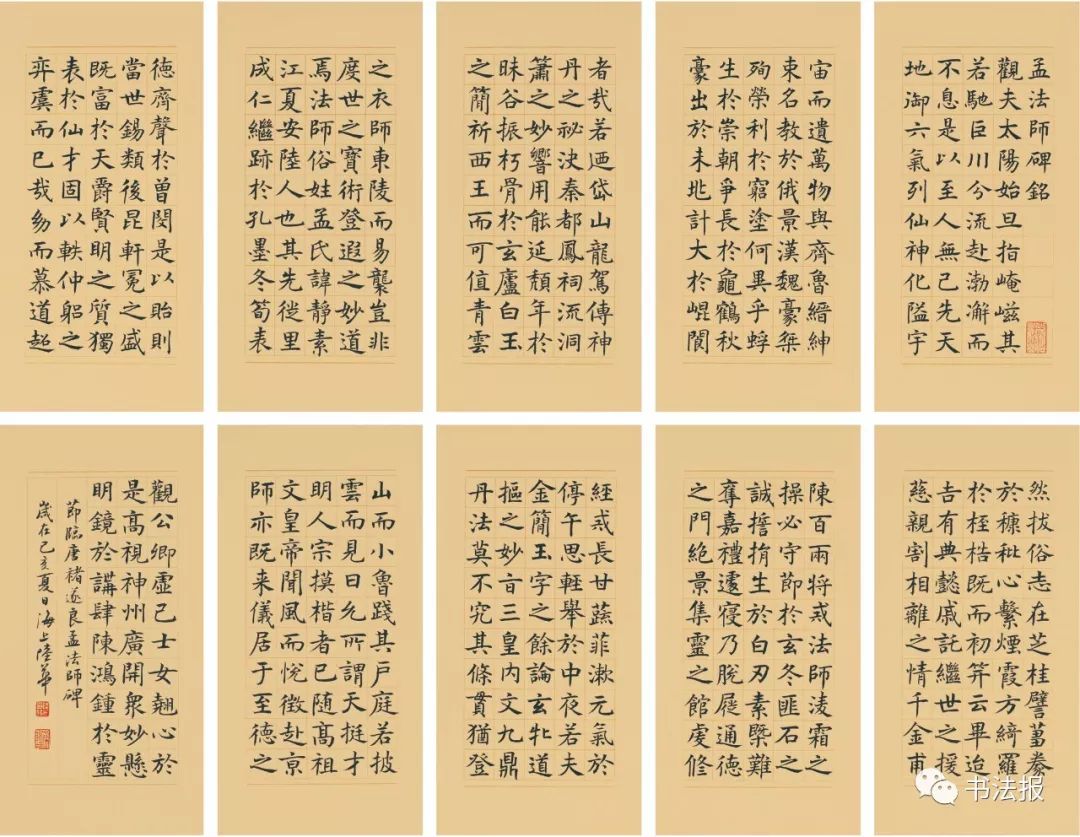 孟法師碑銘
觀夫太陽始旦指崦嵫其
若馳巨川分流赴渤澥而
不息是以至人無己先天
地御六氣列仙神化隘宇
宙而遺萬物與齊魯縉紳
束名教於俄景漢魏豪桀
殉榮利於窮塗何異乎蜉
生於崇朝爭長於龜鶴秋
豪出於未兆計大於崐閬
者哉若迺岱山龍駕傳神
丹之祕決秦都鳳祠流洞
簫之妙響用能延頹年於
昧谷振朽骨於玄廬白玉
之簡祈西王而可值青雲
之衣師東陵而易襲豈非
度世之寶術登遐之妙道
焉法師俗姓孟氏諱靜素
江夏安陸人也其先徙里
成仁繼跡於孔墨冬筍表
德齊聲於曾閔是以貽則
當世錫類後昆軒冕之盛
既富於天爵賢明之質獨
表於仙才固以軼仲躬之
弈虞而已哉幼而慕道超
然拔俗志在芝桂譬芻豢
於穅秕心繫煙霞方綺羅
於桎梏既而初笄云畢迨
吉有典懿戚託繼世之援
慈親割相離之情千金甫
陳百兩將戒法師淩霜之
操必守節於玄冬匪石之
誠誓捐生於白刃素槩難
奪嘉禮遽寢乃脫屣通德
之門絕景集靈之館虔修
經戒長甘蔬菲漱元氣於
停午思輕舉於中夜若夫
金簡玉字之餘論玄牝道
摳之妙旨三皇內文九鼎
丹法莫不究其條貫猶登
山而小魯踐其戶庭若披
雲而見日允所謂天挺才
明人宗摸楷者已隨高祖
文皇帝聞風而悅徵赴京
師亦既来儀居于至德之
觀公卿虛己士女翹心於
是高視神州廣開衆妙懸
明鏡於講肆陳鴻鍾於靈
節臨唐褚遂良孟法師碑
歲在己亥夏日海上陸華
书法报